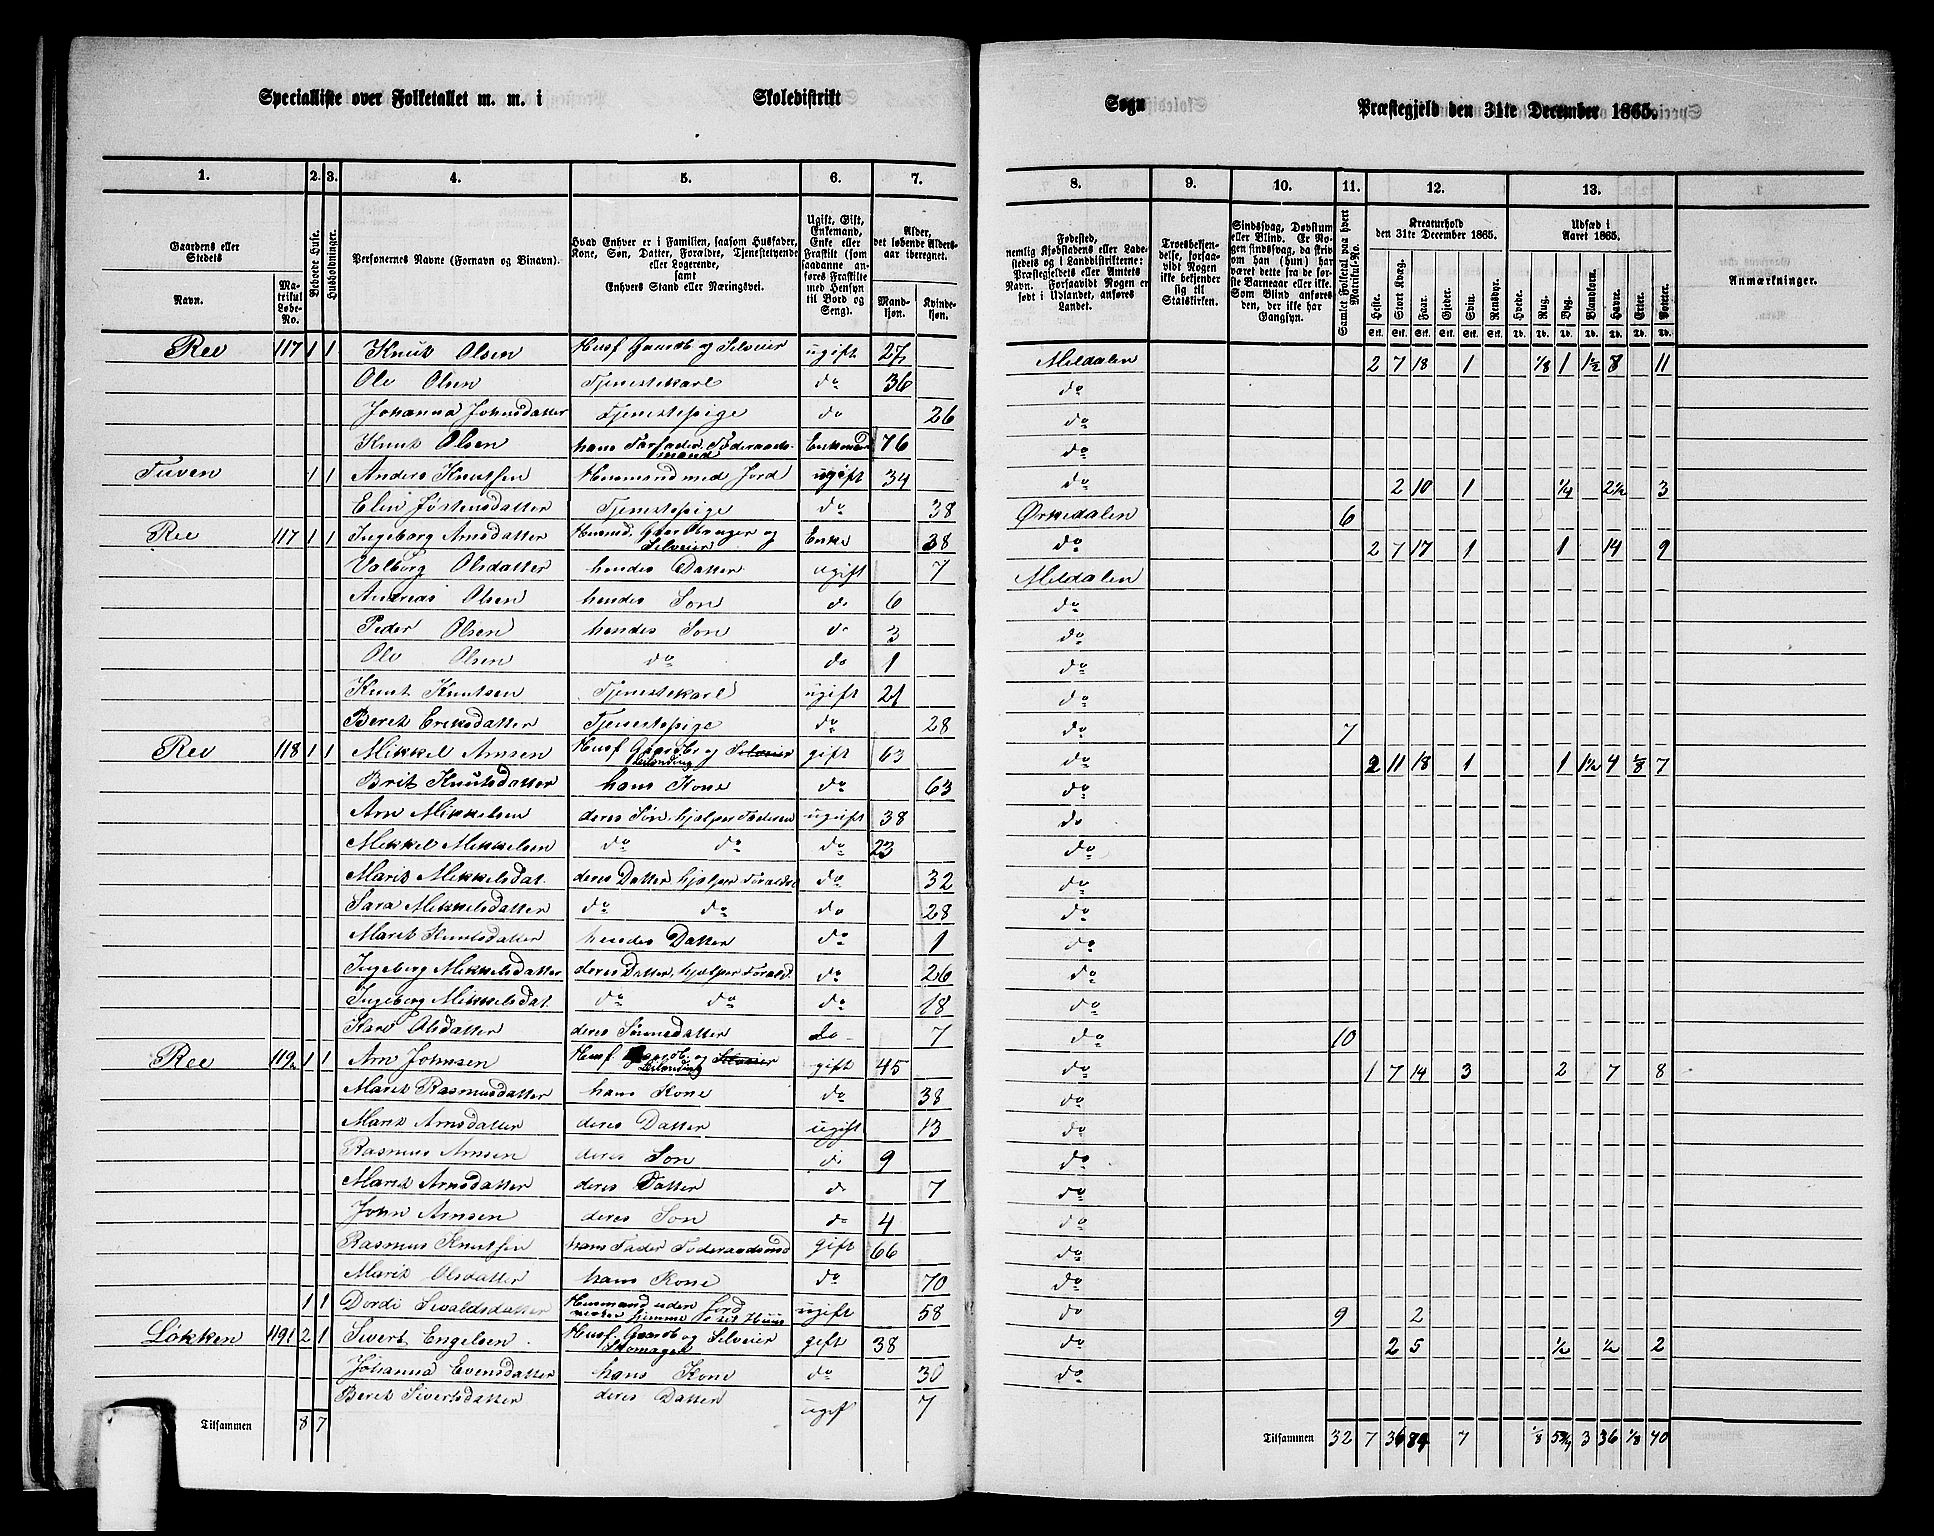 Specialliste over Folketallet m. m. i Skoledistrikt Sogn Præstegjeld den 31te December 1865.
1. 2. 3. 4. 5. 6. 7. 8. 9. 10. 11. 12. 13.
Gaardens eller Stedets Navn. Matrikul Løbe-No. Beboede Huse. Husholdninger. Personernes Navne (Fornavn og Binavn).
Hvad Enhver er i Familien, saasom Husfader, Kone, Søn, Datter, Forældre, Tjenestetyende eller Logerende, samt Enhvers Stand eller Næringsvei.
Ugift, Gift, Enkemand, Enke eller Fraskilt (som saadanne anføres Fraskilte med Hensyn til Bord og Seng).
Alder, det løbende Aldersaar iberegnet. Mandkjøn. Kvindekjøn.
Fødested, nemlig Kjøbstadens eller Ladestedets og i Landdistrikterne: Præstegjeldets eller Amtets Navn. Forsaavidt Nogen er født i Udlandet, anføres Landet.
Troesbekjendelse, forsaavidt Nogen ikke bekjender sig til Statskirken.
Sindssvag, Døvstum eller Blind. Er Nogen sindssvag, da skrives om han (hun) har været dette fra de første Barneaar eller ikke. Som Blind anføres den, der ikke har Gangsyn.
Samlet Folketal paa hvert Matrikul-No.
Kreaturhold den 31te December 1865. Heste. Stort Kvæg. Faar. Gjeder. Svin. Rensdyr.
Udsæd i Aaret 1865. Hvede. Rug. Byg. Blandkorn. Havre. Erter. Poteter.
Anmærkninger.
Ree 117 1 1 Knut Olsen Husf Gaardb og Selveier ugift 27 Meldalen 2 7 18 1 1/8 1 1½ 8 11
Ole Olsen Tjenestekarl do 36 do
Johanna Johnsdatter Tjenestepige do 26 do
Knut Olsen hans Farfader, Føderaadsmand Enkemand 76 do
Tuven 1 1 Anders Knutsen Husmand med Jord ugift 34 do 2 10 1 ¼ 2½ 3
Elin Jostensdatter Tjenestepige do 38 Ørkedalen 6
Ree 117 1 1 Ingeborg Arnsdatter Husmd. Gaardbruger og Selveier Enke 38 do 2 7 17 1 1 14 9
Valborg Olsdatter hendes Datter ugift 7 Meldalen
Andreas Olsen hendes Søn do 6 do
Peder Olsen hendes Søn do 3 do
Ole Olsen do do 1 do
Knut Knutsen Tjenestekarl ugift 21 do
Berit Eriksdatter Tjenestepige do 28 do 7
Ree 118 1 1 Mikkel Arnsen Husf Gaardbr og Selveier Leilænding gift 63 do 2 11 18 1 1 1½ 4 1/8 7
Brit Knutsdatter hans Kone do 63 do
Arn Mikkelsen deres Søn, hjelper Faderen ugift 38 do
Mikkel Mikkelsen do do do 23 do
Marit Mikkelsdat. deres Datter, hjelper Forældre do 32 do
Sara Mikkelsdatter do do do 28 do
Marit Knutsdatter hendes Datter do 1 do
Ingeborg Mikkelsdatter deres Datter, hjelper Foræld. do 26 do
Ingeborg Mikkelsdat. do do do 18 do
Kari Olsdatter deres Sønnsdatter do 7 do 10
Ree 119 2 1 1 Arn Johnsen Husf Gaardb. og Selveier Leilænding gift 45 do 1 7 14 3 2 7 8
Marit Rasmusdatter hans Kone do 38 do
Marit Arnsdatter deres Datter ugift 13 do
Rasmus Arnsen deres Søn do 9 do
Marit Arnsdatter deres Datter do 7 do
John Arnsen deres Søn do 4 do
Rasmus Knutsen hans Fader Føderaadsmd gift 66 do
Marit Olsdatter hans Kone do 70 do
1 1 Dordi Sivaldsdatter Husmand uden Jord ugift 58 do 9 2
Løkken 119 1 2 1 Sivert Engelsen Husf. Gaardb og Selveier Skomager gift 38 do 2 5 ½ ½ 2
Johanna Evensdatter hans Kone do 30 do
Berit Sivertsdatter deres Datter ugift 7
Tilsammen 8 7 Tilsammen 32 7 36 84 7 1/8 5¾ 3 36 1/8 40